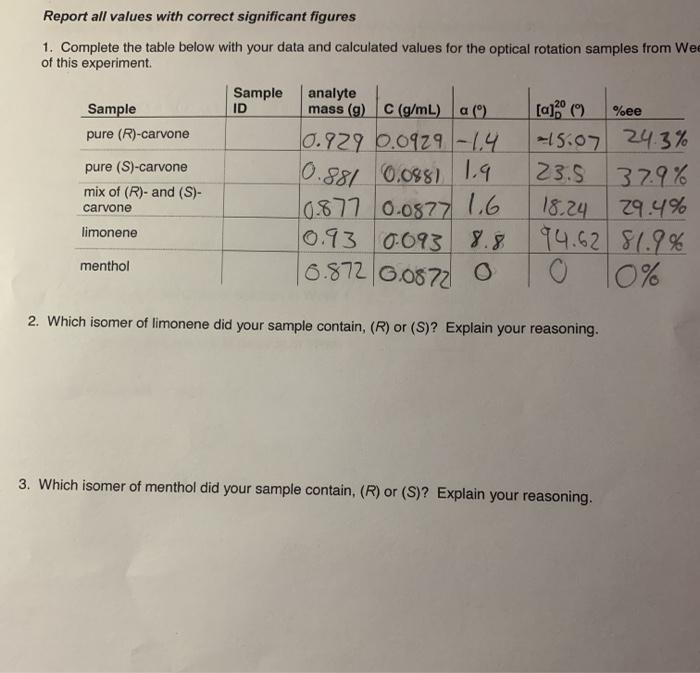 Report all values with correct significant figures
1. Complete the table below with your data and calculated values for the optical rotation samples from Wee
of this experiment.
Sample Sample ID analyte mass (g) C (g/mL) α (º) [α]20D (º) %ee
pure (R)-carvone 0.929 0.0929 -1.4 -15.07 24.3%
pure (S)-carvone 0.881 0.0881 1.9 23.5 37.9%
mix of (R)- and (S)-carvone 0.877 0.0877 1.6 18.24 29.4%
limonene 0.93 0.093 8.8 94.62 81.9%
menthol 0.872 0.0872 0 0 0%
2. Which isomer of limonene did your sample contain, (R) or (S)? Explain your reasoning.
3. Which isomer of menthol did your sample contain, (R) or (S)? Explain your reasoning.